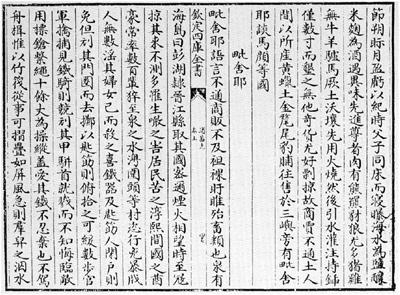 節朔時月盈虧以紀時父子同床而寢曝海水為鹽釀
米麯為酒遇異味先進尊者肉有熊羆豺狼尤多猪雞
無牛羊驢馬厥土沃壤先用火燒然後引水灌注持鍤
僅數寸而墾之無他奇貨尤好剽掠故商賈不通土人
間以所產黃蠟土金氂尾豹脯往售於三嶼旁有毗舍
耶談馬顏等國
毗舍耶
欽定四庫全書
卷上
毗舍耶語言不通商販不及袒裸盱睢殆畜類也泉有
海島曰彭湖隸晉江縣與其國密邇煙火相望時至寇
掠其來不測多罹生噉之害居民苦之淳熙間國之酋
豪常率數百輩猝至泉之水澳圍頭等村恣行兇暴戕
人無數淫其婦女已而殺之喜鐵器及匙筯人閉戶則
免但刓其門圈而去擲以匙筯則俯拾之可緩數步官
軍擒捕見鐵騎則競刓其甲駢首就戮而不知悔臨敵
用摽鎗繫繩十餘丈為操縱蓋愛其鐵不忍棄也不駕
舟楫惟以竹筏從事可摺疊如屏風急則羣舁之泅水